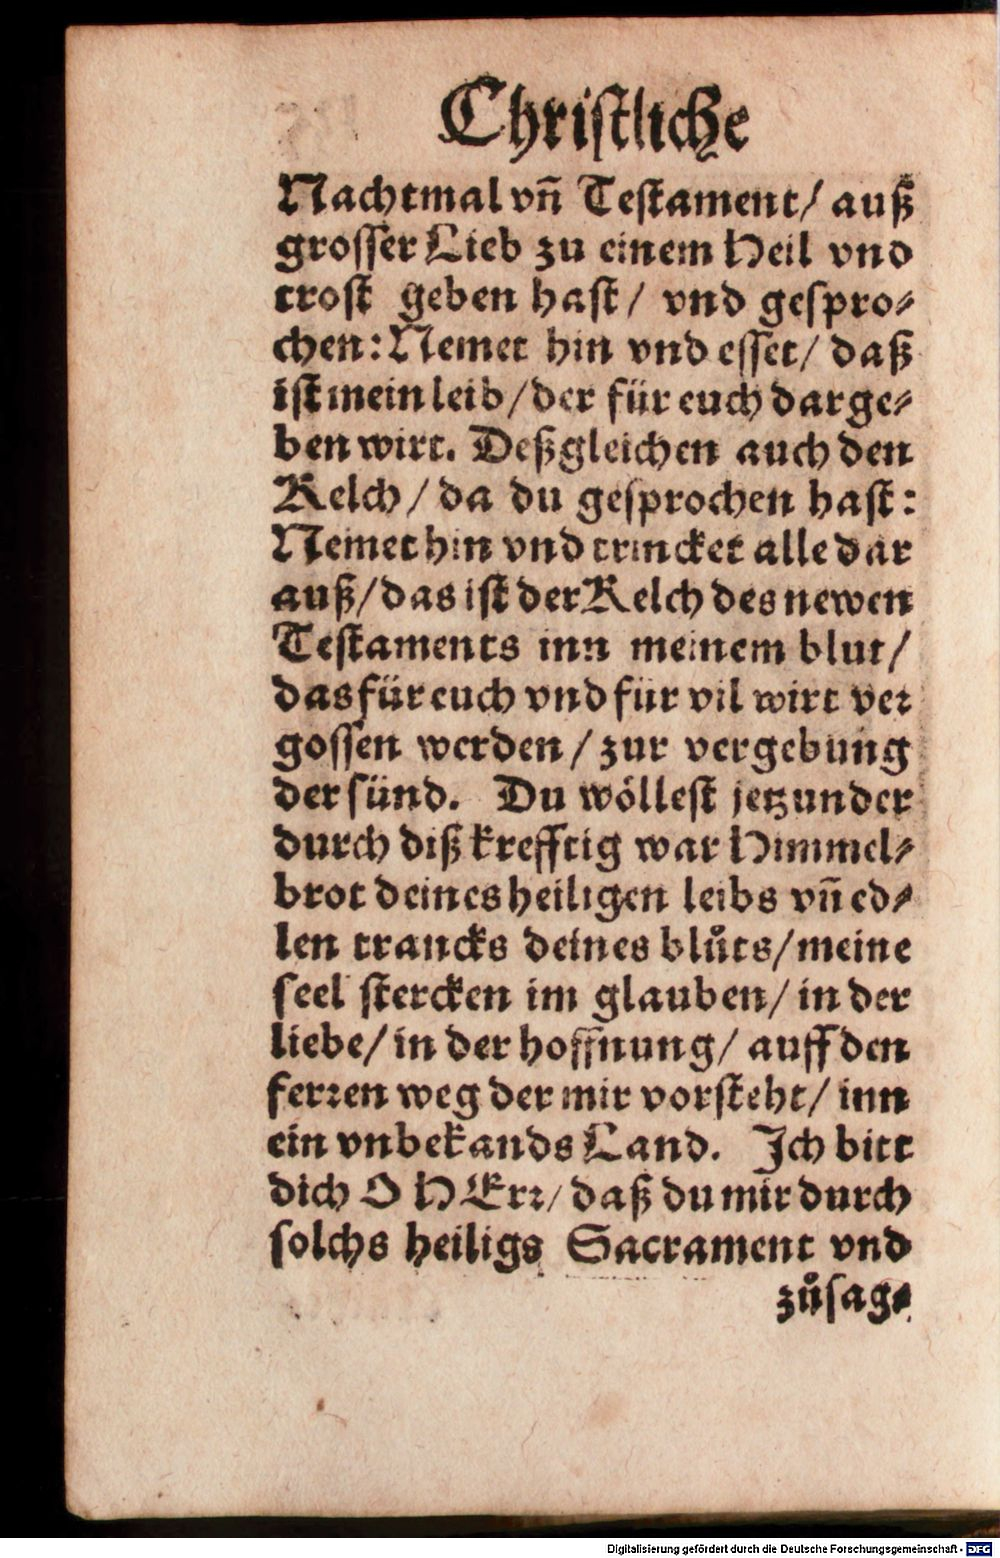 Christliche
Nachtmal vñ Testament/ auß
grosser Lieb zu einem Heil vnd
trost geben hast/ vnd gespro⸗
chen: Nemet hin vnd esset/ daß
ist mein leib/der für euch darge⸗
ben wirt. Deßgleichen auch den
Kelch/ da du gesprochen hast:
Nemet hin vnd trincket alle dar
auß/das ist der Kelch des newen
Testaments inn meinem blut/
das für euch vnd für vil wirt ver
gossen werden/ zur vergebung
der sünd. Du wöllest jetzunder
durch diß krefftig war Himmel⸗
brot deines heiligen leibs vñ ed⸗
len trancks deines blůts/meine
seel stercken im glauben/ in der
liebe/ in der hoffnung/ auff den
ferren weg der mir vorsteht/ inn
ein vnbekands Land. Ich bitt
dich O HErr/ daß du mir durch
solchs heiligs Sacrament vnd
zůsag⸗
Digitalisierung gefördert durch die Deutsche Forschungsgemeinschaft - DFG